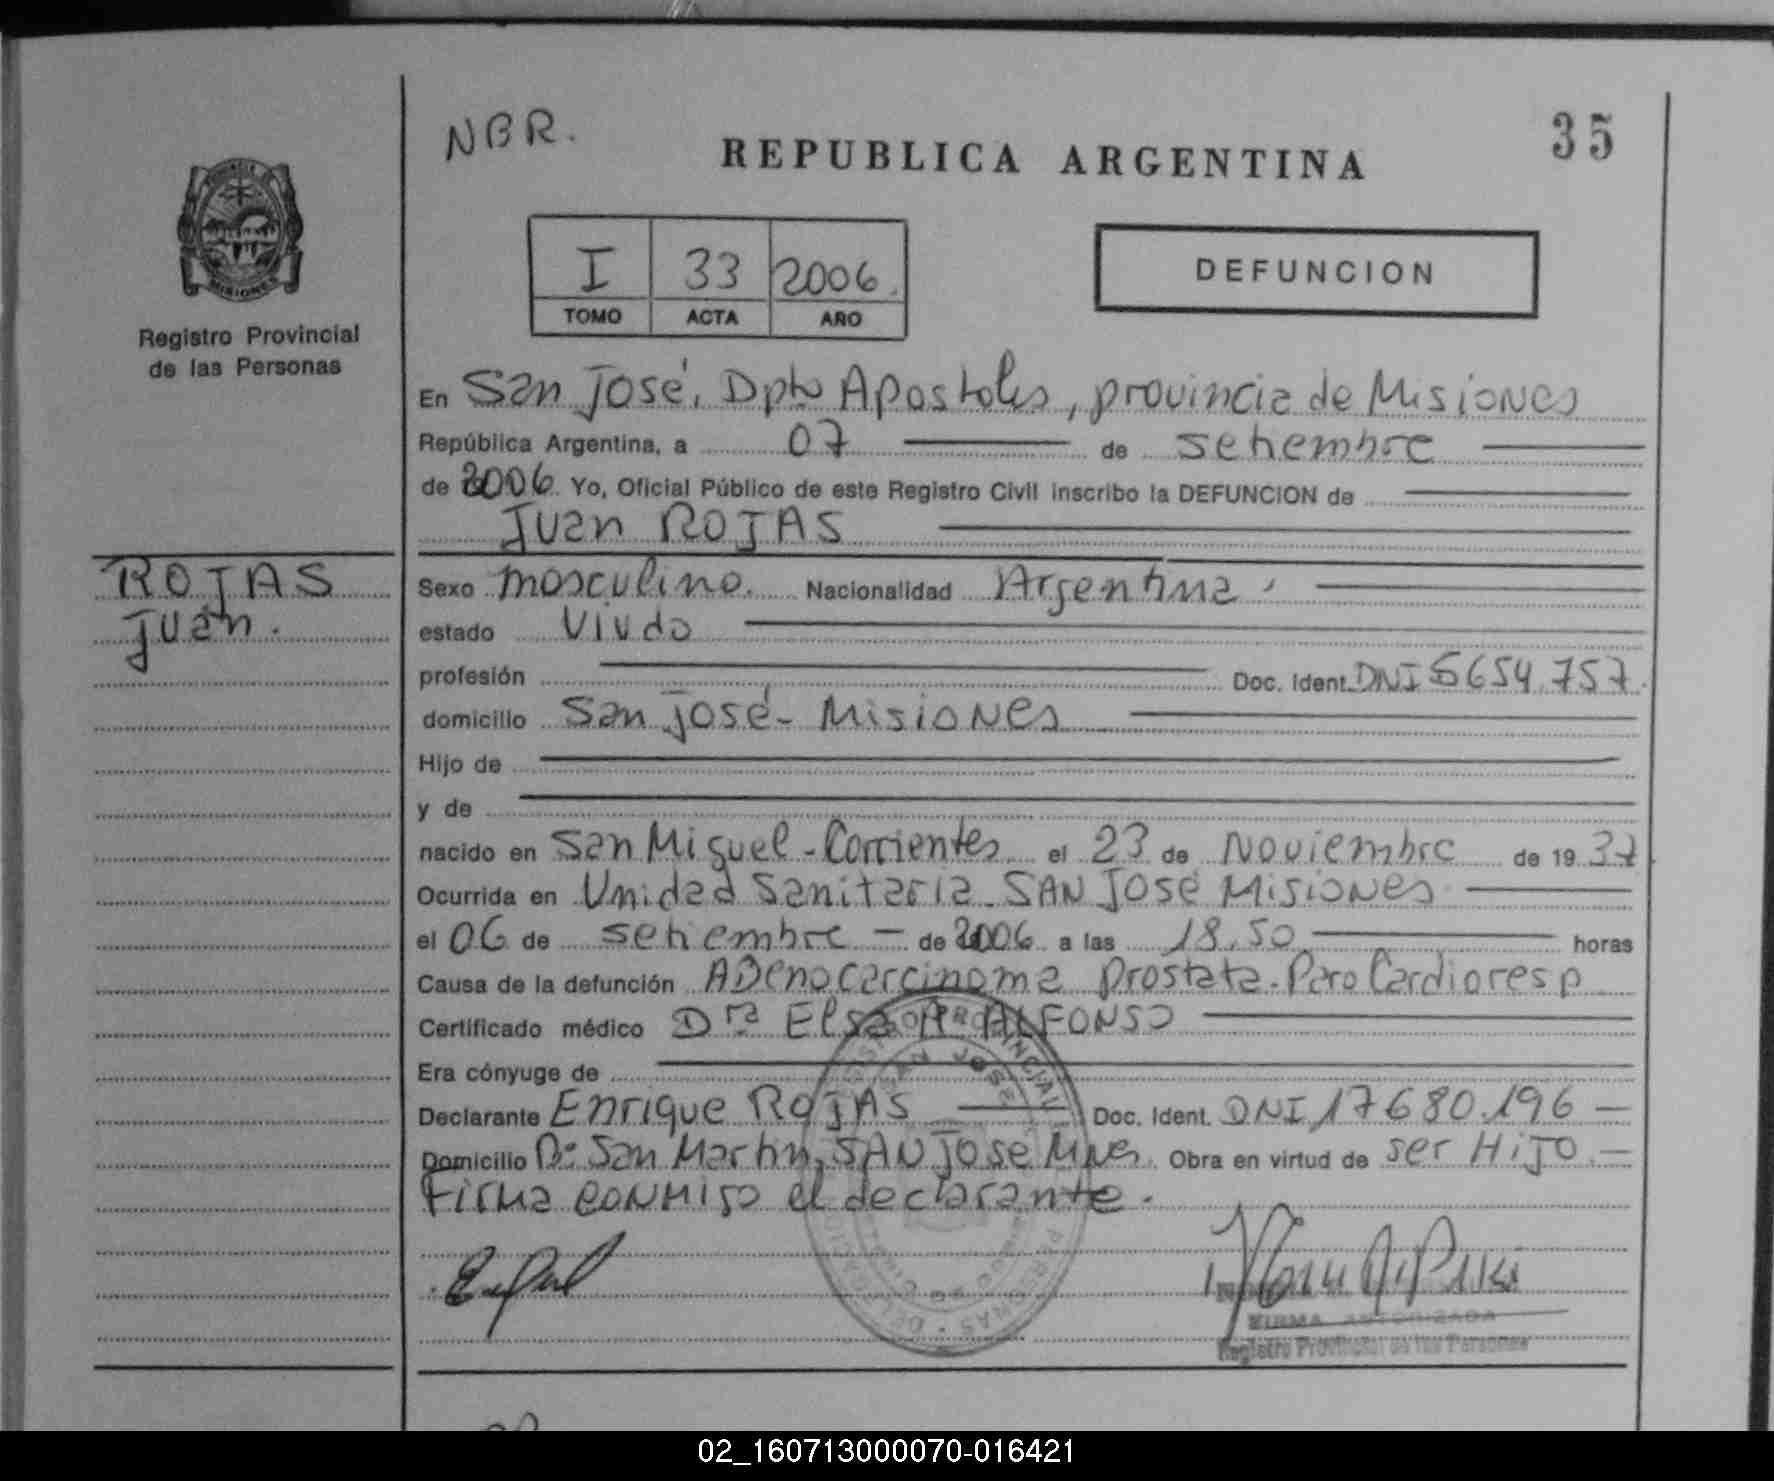 NBR.
REPUBLICA ARGENTINA
35
I 33 2006.
TOMO ACTA AÑO
DEFUNCION
MISIONES
Registro Provincial
de las Personas
En San José, Dpto Apostoles, provincia de Misiones
República Argentina, a 07 de setiembre
de 2006. Yo, Oficial Público de este Registro Civil inscribo la DEFUNCION de
Juan ROJAS
ROJAS
Juan.
Sexo masculino. Nacionalidad Argentina,
estado Viudo
profesión Doc. Ident. DNI 5654.757.
domicilio San José - Misiones
Hijo de
y de
nacido en San Miguel - Corrientes el 23 de Noviembre de 1937.
Ocurrida en Unidad Sanitaria - SAN José Misiones
el 06 de setiembre - de 2006 a las 18,50 horas
Causa de la defunción Adenocarcinoma Prostata. Paro Cardioresp
Certificado médico Dra Elsa A. ALFONSO
Era cónyuge de
Declarante Enrique ROJAS Doc. Ident. DNI 17680.196 -
Domicilio Bº San Martin, SAN Jose Mnes. Obra en virtud de ser Hijo. -
Firma conmigo el declarante.
FIRMA AUTORIZADA
Registro Provincial de las Personas
02_160713000070-016421